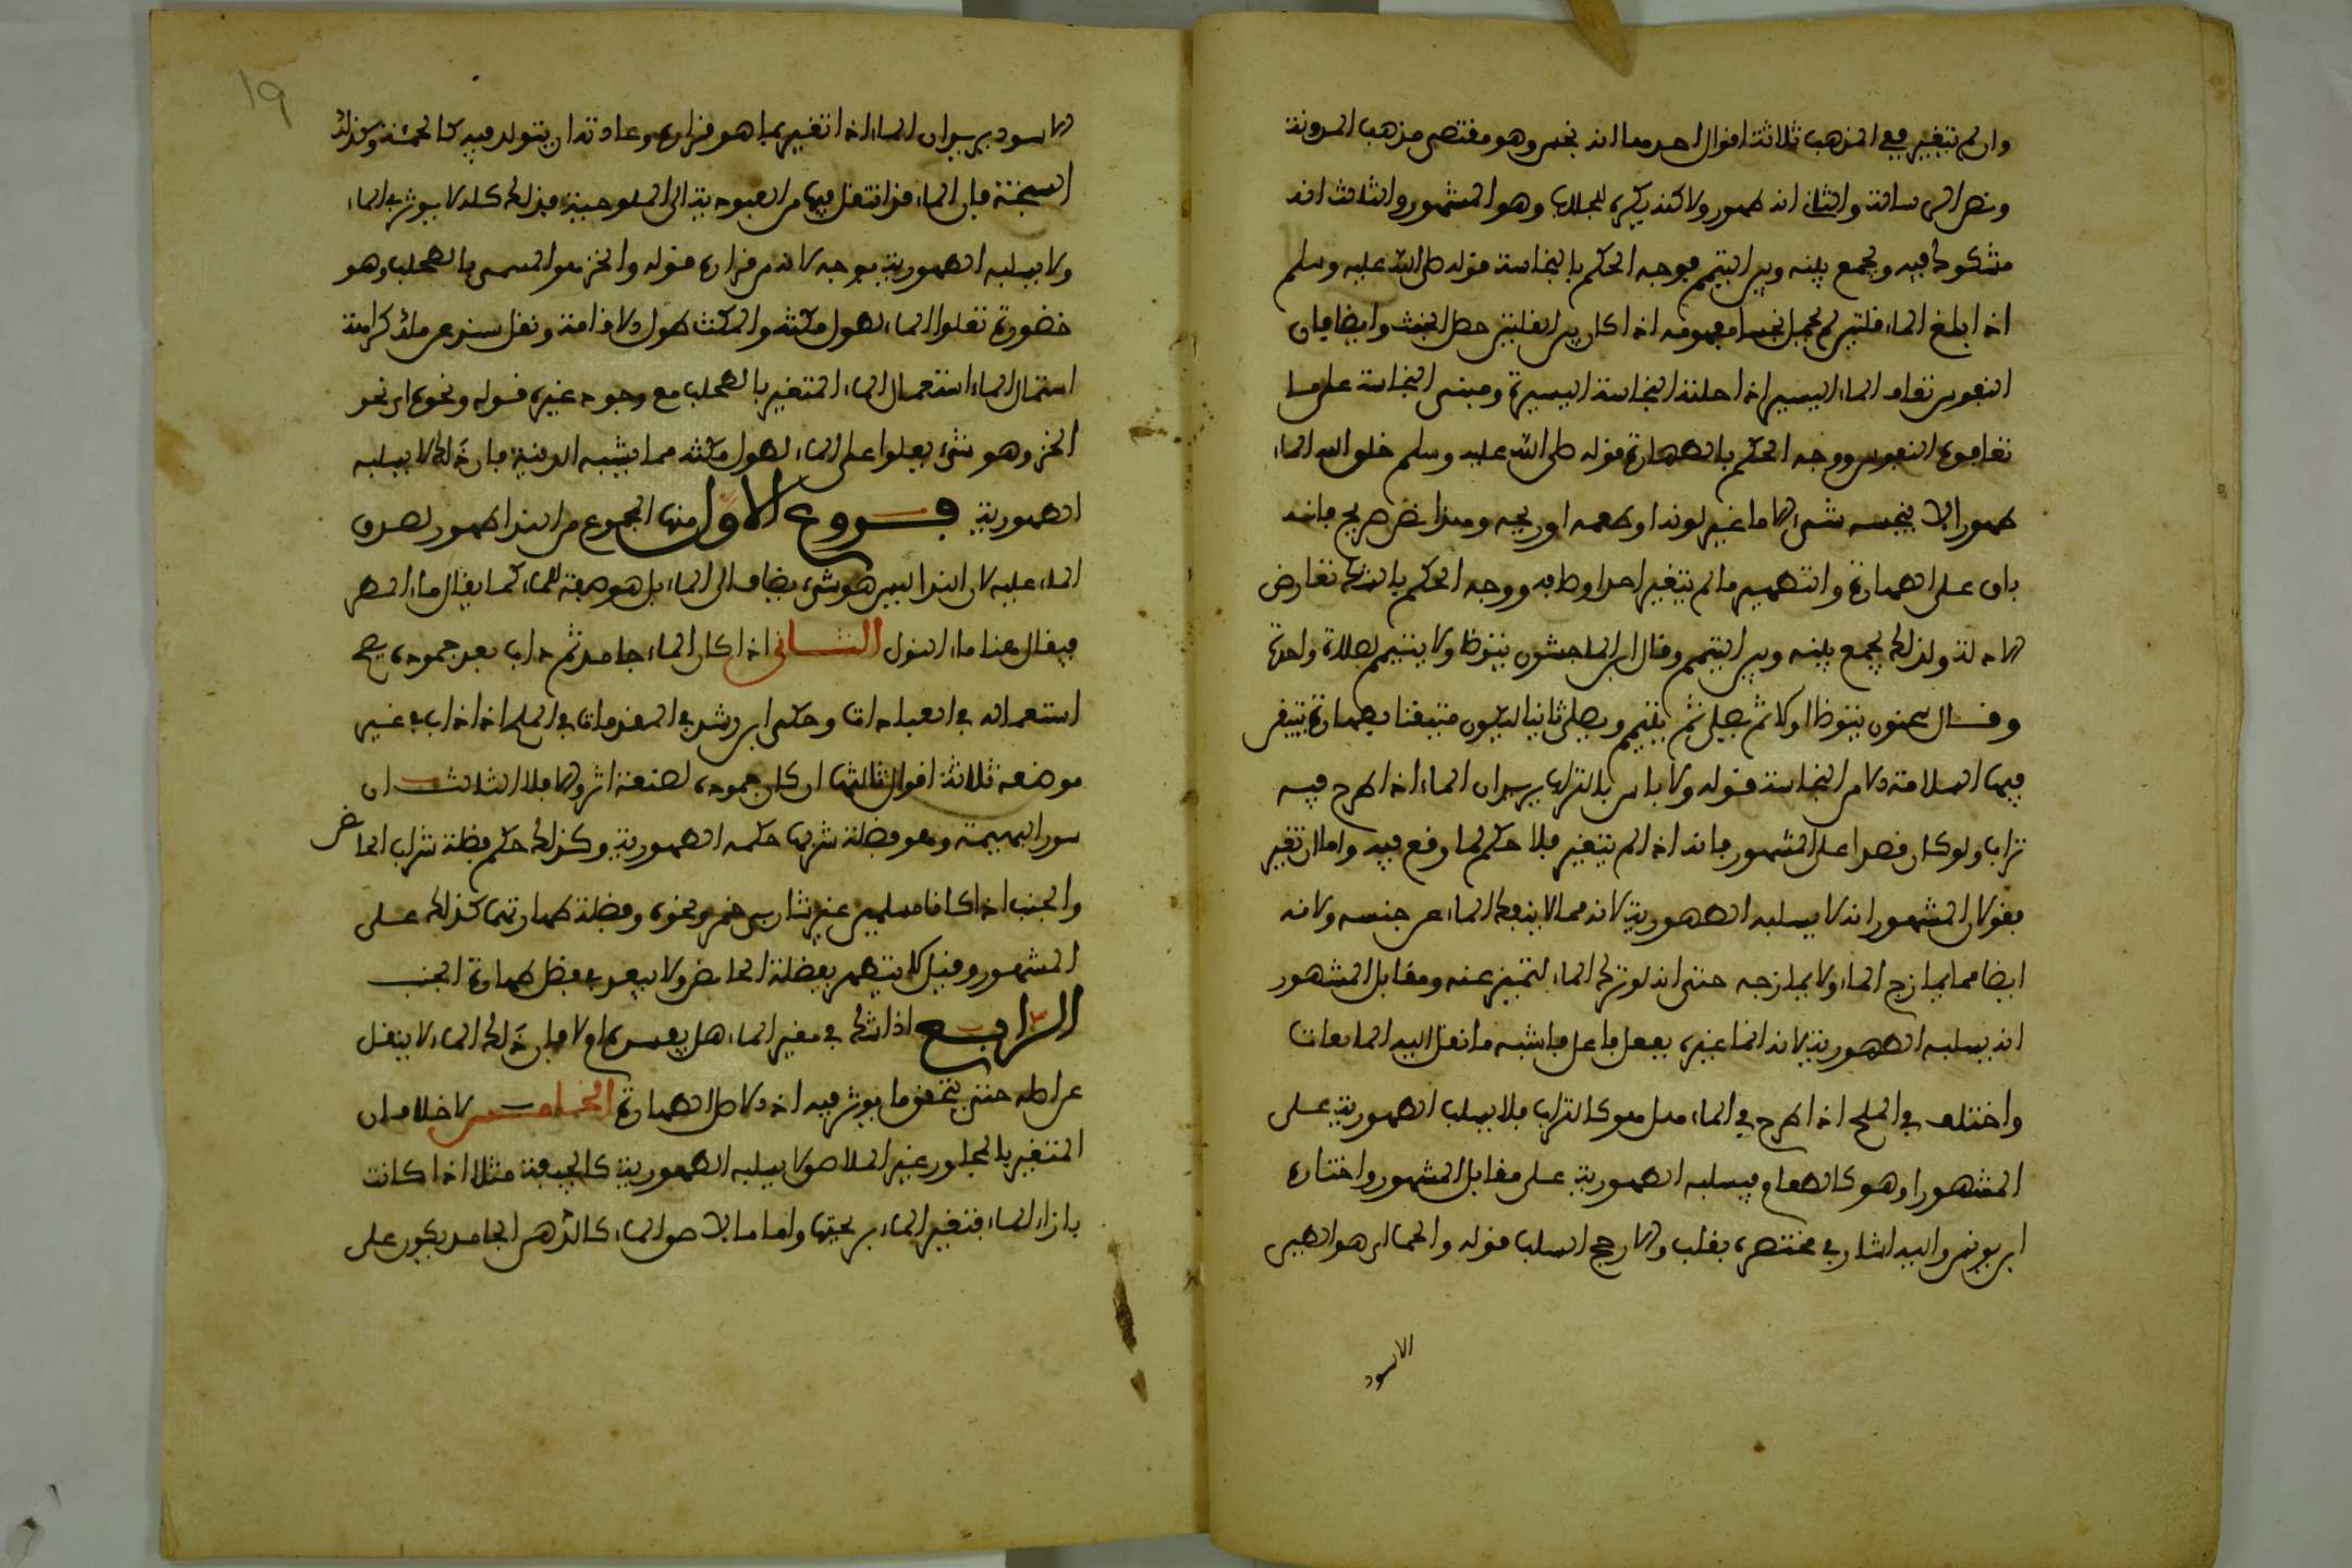 وان لم يتغير ففي المذهب ثلاثة اقوال احدها انه نجس وهو مقتضى مذهب المدونة
ونص الرسالة والثاني انه طهور ولكنه يكره للخلاف وهو المشهور والثالث انه
مشكوك فيه ويجمع بينه وبين التيمم فوجه الحكم بالنجاسة قوله صلى الله عليه وسلم
اذا بلغ الماء قلتين لم يحمل نجسا مفهومه اذا كان دون القلتين حمل الخبث وايضا فان
النفوس تعاف الماء اليسير اذا حلته النجاسة اليسيرة ومبنى النجاسة على ما
تعافه النفوس ووجه الحكم بالطهارة قوله صلى الله عليه وسلم خلق الله الماء
طهورا لا ينجسه شيء الا ما غير لونه او طعمه او ريحه وهذا نص صريح فانه
باق على الطهارة والتطهير ما لم يتغير احد اوصافه ووجه الحكم بالشك تعارض
الادلة ولذلك يجمع بينه وبين التيمم وقال ابن الماجشون يتوضا ويتيمم لصلاة واحدة
وقال سحنون يتوضا اولا ثم يصلي ثم يتيمم ويصلي ثانيا ليكون متيقنا بطهارة يتيقن
فيها السلامة من النجاسة قوله ولا باس بالتراب يريد ان الماء اذا طرح فيه
تراب ولو كان قصدا على المشهور فانه اذا لم يتغير فلا حكم لما وقع فيه واما ان تغير
فقولان المشهور انه لا يسلبه الطهورية لانه مما لا ينفك الماء عن جنسه ولانه
ايضا مما يمازج الماء ولا يمازجه حتى انه لو ترك الماء لتميز عنه ومقابل المشهور
انه يسلبه الطهورية لانه انما غيره بفعل فاعل فاشبه ما نقل اليه المايعات
واختلف في الملح اذا طرح في الماء هل هو كالتراب فلا يسلب الطهورية على
المشهور او هو كالطعام فيسلبه الطهورية على مقابل المشهور واختاره
ابن يونس واليه اشار في مختصره بقلب والارجح السلب قوله والحماة هو الطين
الاسود
١٩
الاسود يريد ان الماء اذا تغير بما هو قراره وعادته ان يتولد فيه كالحمئة وكذلك
السبخة فان الماء قد انتقل فيها من العذوبة الى الملوحية فذلك كله لا يوثر في الماء
ولا يسلبه الطهورية بوجه لانه من قراره قوله والخز هو المسمى بالطحلب وهو
خضورة تعلوا الماء لطول مكثه والمكث طول الاقامة ونقل سند عن ملك كراهة
استعمال الماء المتغير بالطحلب مع وجود غيره قوله ونحوه اي نحو
الخز وهو شيء يعلوا على الماء لطول مكثه مما يشبه الدهنية فان ذلك لا يسلبه
الطهورية فروع الاول منها المجموع من الندا طهور لصدق
الماء عليه لان الندا ليس هو شيء يضاف الى الماء بل هو صفة للماء كما يقال ماء المطر
فيقال هنا ماء النزل الثاني اذا كان الماء جامدا ثم ذاب بعد جموده يصح
استعماله في العبادات وحكى ابن رشد في المقدمات في الملح اذا ذاب في غير
موضعه ثلاثة اقوال ثالثها ان كان جموده لصنعة اثر والا فلا الثالث ان
سور البهيمة وهو فضلة شربها حكمه الطهورية وكذلك حكم فضلة شراب الحائض
والجنب اذا كانا مسلمين غير شاربي خمر ونحوه وفضلة طهارتهما كذلك على
المشهور وقيل لا يتطهر بفضلة الحائض ولا يبعد في فضل طهارة الجنب
الرابع اذا شك في مغير الماء هل يفسده ام لا فان ذلك الماء لا ينقل
عن اصله حتى يتحقق ما يوثر فيه اذ الاصل الطهارة الخامس لا خلاف ان
المتغير بالمجاور غير الملاصق لا يسلبه الطهورية كالجيفة مثلا اذا كانت
بازاء الماء فتغير الماء بريحتها واما ما لاصق الماء كالدهن الجامد يكون على